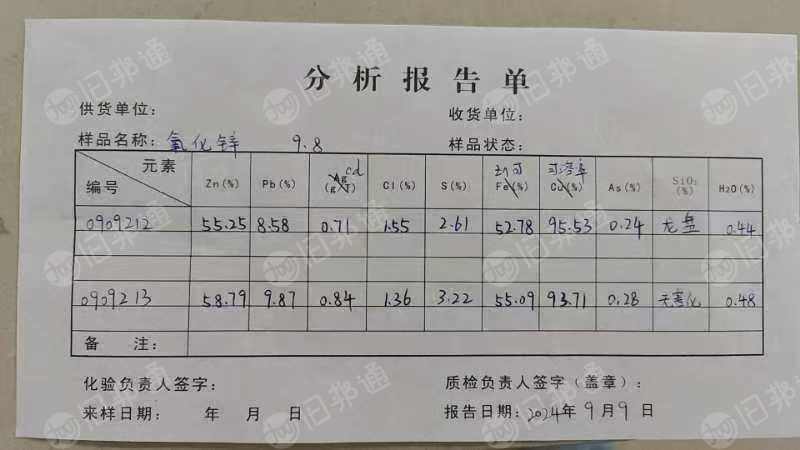 分析报告单
供货单位: 收货单位:
样品名称: 氧化锌 9.8 样品状态:
元素 编号 Zn(%) Pb(%) Ag(g/T) cd Cl(%) S(%) Zn可 Fe(%) 可溶率 Cu(%) As(%) SiO2(%) H2O(%)
0909212 55.25 8.58 0.71 1.55 2.61 52.78 95.53 0.24 龙盘 0.44
0909213 58.79 9.87 0.84 1.36 3.22 55.09 93.71 0.28 无害化 0.48
备 注:
化验负责人签字: 质检负责人签字(盖章):
来样日期: 年 月 日 报告日期: 2024年9月9日
旧邦通